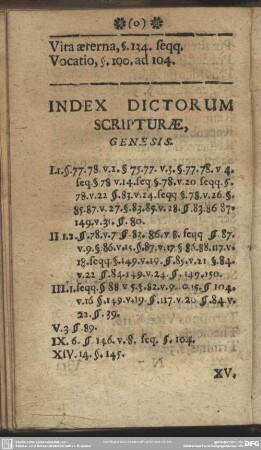 ❋(o)❋
Vita æterna, §. 124. seqq.
Vocatio, §. 100. ad 104.
INDEX DICTORUM
SCRIPTURÆ,
GENESIS.
I.1.§.77.78. v.2. § 75.77. v.3. §.77.78. v 4.
seq.§ 78 v.14. seq §.78. v.20 seqq. §.
78. v.22 §.83. v.24. seqq §.78. v.26. §.
85.87. v.27. §.83.85. v.28. §.83.86 87.
149. v.31. §. 80.
II 1.2. §.78. v.7 §. 82. 86. v 8. seqq §. 87.
v.9. §.86. v.15. §.87. v.17 § 86.88.117. v.
18. seqq. §.149. v.19. §.85. v.21 §.84.
v.22 §.84.149. v.24. §. 149.150.
III.1. seqq. § 88 v 5. §.82. v.9. 15. § 104.
v.16 §.149. v.19 §.117. v.20 §.84. v.
22. §. 39.
V.3 §. 89.
IX. 6. §. 146. v.8. seq. §. 104.
XIV. 14. §. 145.
XV.